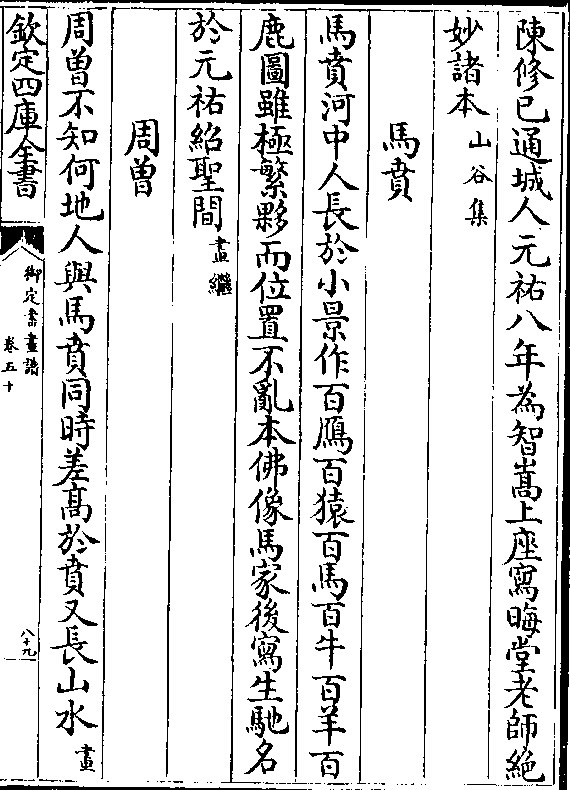 陳修已通城人元祐八年為智嵩上座寫晦堂老師絶
妙諸本山谷集
馬賁
馬賁河中人長於小景作百鴈百猿百馬百牛百羊百
鹿圖雖極繁夥而位置不亂本佛像馬家後寫生馳名
於元祐紹聖間畫繼
周曽
周曽不知何地人與馬賁同時差髙於賁又長山水畫
欽定四庫全書
御定書畫譜
卷五十
八十九